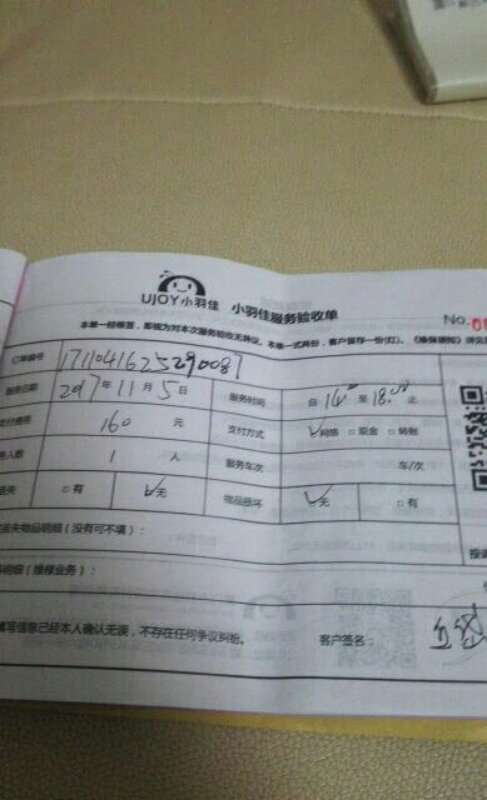 UJOY小羽佳 小羽佳服务验收单
No.0
本单一经签署，即视为对本次服务验收无异议。本单一式两份，客户保存一份(红)。《维保须知》详见
订单编号 1711041625290087
服务日期 2017年11月5日 服务时间 自 14:00 至 18:00 止
支付费用 160 元 支付方式 ☑网络 □现金 □转账
务人数 1 人 服务车次 车/次
丢失 □有 ☑无 物品损坏 ☑无 □有
丢失物品明细（没有可不填）：
投诉
明细（维修业务）：
填写信息已经本人确认无误，不存在任何争议纠纷。 客户签名：